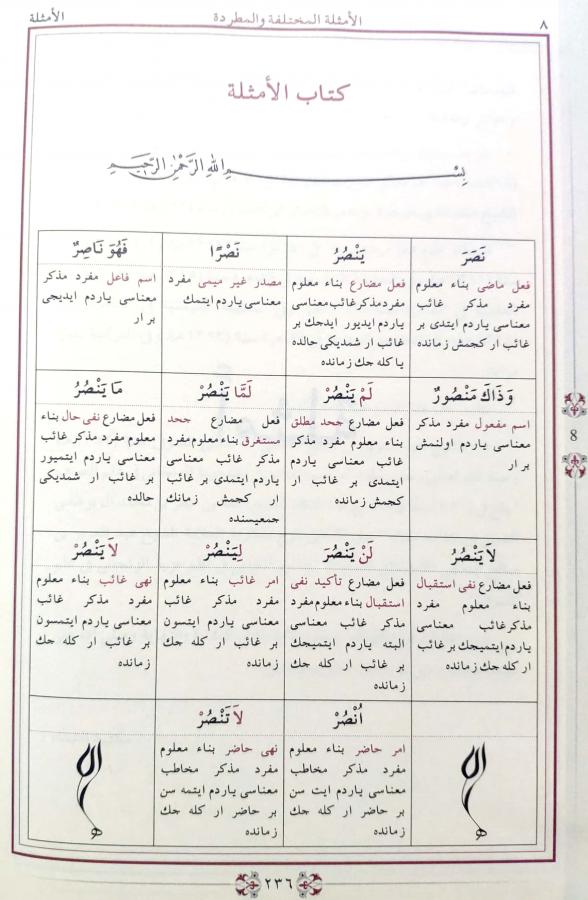 ٨
الأمثلة المختلفة والمطردة
الأمثلة
كتاب الأمثلة
بسم الله الرحمن الرحيم
نَصَرَ
فعل ماضى بناء معلوم
مفرد مذكر غائب
معناسى ياردم ايتدى بر
غائب ار كجمش زمانده
يَنْصُرُ
فعل مضارع بناء معلوم
مفرد مذكر غائب معناسى
ياردم ايديور ايدجك بر
غائب ار شمديكى حالده
يا كله جك زمانده
نَصْرًا
مصدر غير ميمى مفرد
معناسى ياردم ايتمك
فَهُوَ نَاصِرٌ
اسم فاعل مفرد مذكر
معناسى ياردم ايديجى
بر ار
وَذَاكَ مَنْصُورٌ
اسم مفعول مفرد مذكر
معناسى ياردم اولنمش
بر ار
لَمْ يَنْصُرْ
فعل مضارع جحد مطلق
بناء معلوم مفرد مذكر
غائب معناسى ياردم
ايتمدى بر غائب ار
كجمش زمانده
لَمَّا يَنْصُرْ
فعل مضارع جحد
مستغرق بناء معلوم مفرد
مذكر غائب معناسى
ياردم ايتمدى بر غائب
ار كجمش زمانك
جمعيسنده
مَا يَنْصُرُ
فعل مضارع نفى حال بناء
معلوم مفرد مذكر غائب
معناسى ياردم ايتميور
بر غائب ار شمديكى
حالده
لاَ يَنْصُرُ
فعل مضارع نفى استقبال
بناء معلوم مفرد
مذكر غائب معناسى
ياردم ايتميجك بر غائب
ار كله جك زمانده
لَنْ يَنْصُرَ
فعل مضارع تأكيد نفى
استقبال بناء معلوم مفرد
مذكر غائب معناسى
البته ياردم ايتميجك
بر غائب ار كله جك
زمانده
لِيَنْصُرْ
امر غائب بناء معلوم
مفرد مذكر غائب
معناسى ياردم ايتسون
بر غائب ار كله جك
زمانده
لاَ يَنْصُرْ
نهى غائب بناء معلوم
مفرد مذكر غائب
معناسى ياردم ايتمسون
بر غائب ار كله جك
زمانده
اُنْصُرْ
امر حاضر بناء معلوم
مفرد مذكر مخاطب
معناسى ياردم ايت سن
بر حاضر ار كله جك
زمانده
لاَ تَنْصُرْ
نهى حاضر بناء معلوم
مفرد مذكر مخاطب
معناسى ياردم ايتمه سن
بر حاضر ار كله جك
زمانده
8
٢٣٦